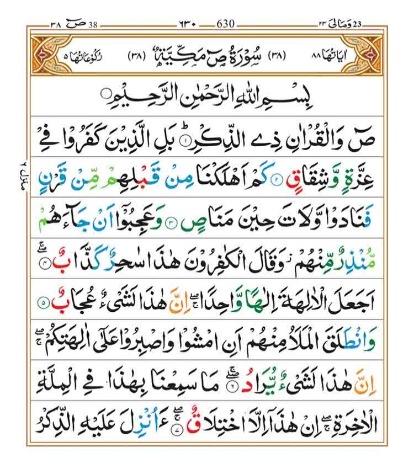 ص 38 ٣٨ ٦٣٠ 630 ومالى 23 ٢٣
اٰیاتها ٨٨ (٣٨) سُوْرَةُ صٓ مَكِّيَّةٌ (٣٨) رکوعاتها ٥
بِسْمِ اللّٰهِ الرَّحْمٰنِ الرَّحِيْمِ
صٓ وَالْقُرْاٰنِ ذِى الذِّكْرِؕ۝۱ بَلِ الَّذِيْنَ كَفَرُوْا فِيْ
عِزَّةٍ وَّشِقَاقٍ۝۲ كَمْ اَهْلَكْنَا مِنْ قَبْلِهِمْ مِّنْ قَرْنٍ
فَنَادَوْا وَّلَاتَ حِيْنَ مَنَاصٍ۝۳ وَعَجِبُوْۤا اَنْ جَآءَهُمْ
مُّنْذِرٌ مِّنْهُمْ ز وَقَالَ الْكٰفِرُوْنَ هٰذَا سٰحِرٌ كَذَّابٌ ۖۚ۝۴
اَجَعَلَ الْاٰلِهَةَ اِلٰهًا وَّاحِدًا ۖۚ اِنَّ هٰذَا لَشَيْءٌ عُجَابٌ۝۵
وَانْطَلَقَ الْمَلَاُ مِنْهُمْ اَنِ امْشُوْا وَاصْبِرُوْا عَلٰٓى اٰلِهَتِكُمْ ۖۚ
اِنَّ هٰذَا لَشَيْءٌ يُّرَادُ ۖۚ۝۶ مَا سَمِعْنَا بِهٰذَا فِي الْمِلَّةِ
الْاٰخِرَةِ ۖۚ اِنْ هٰذَاۤ اِلَّا اخْتِلَاقٌ ۖۚ۝۷ ءَاُنْزِلَ عَلَيْهِ الذِّكْرُ
منزل ٦